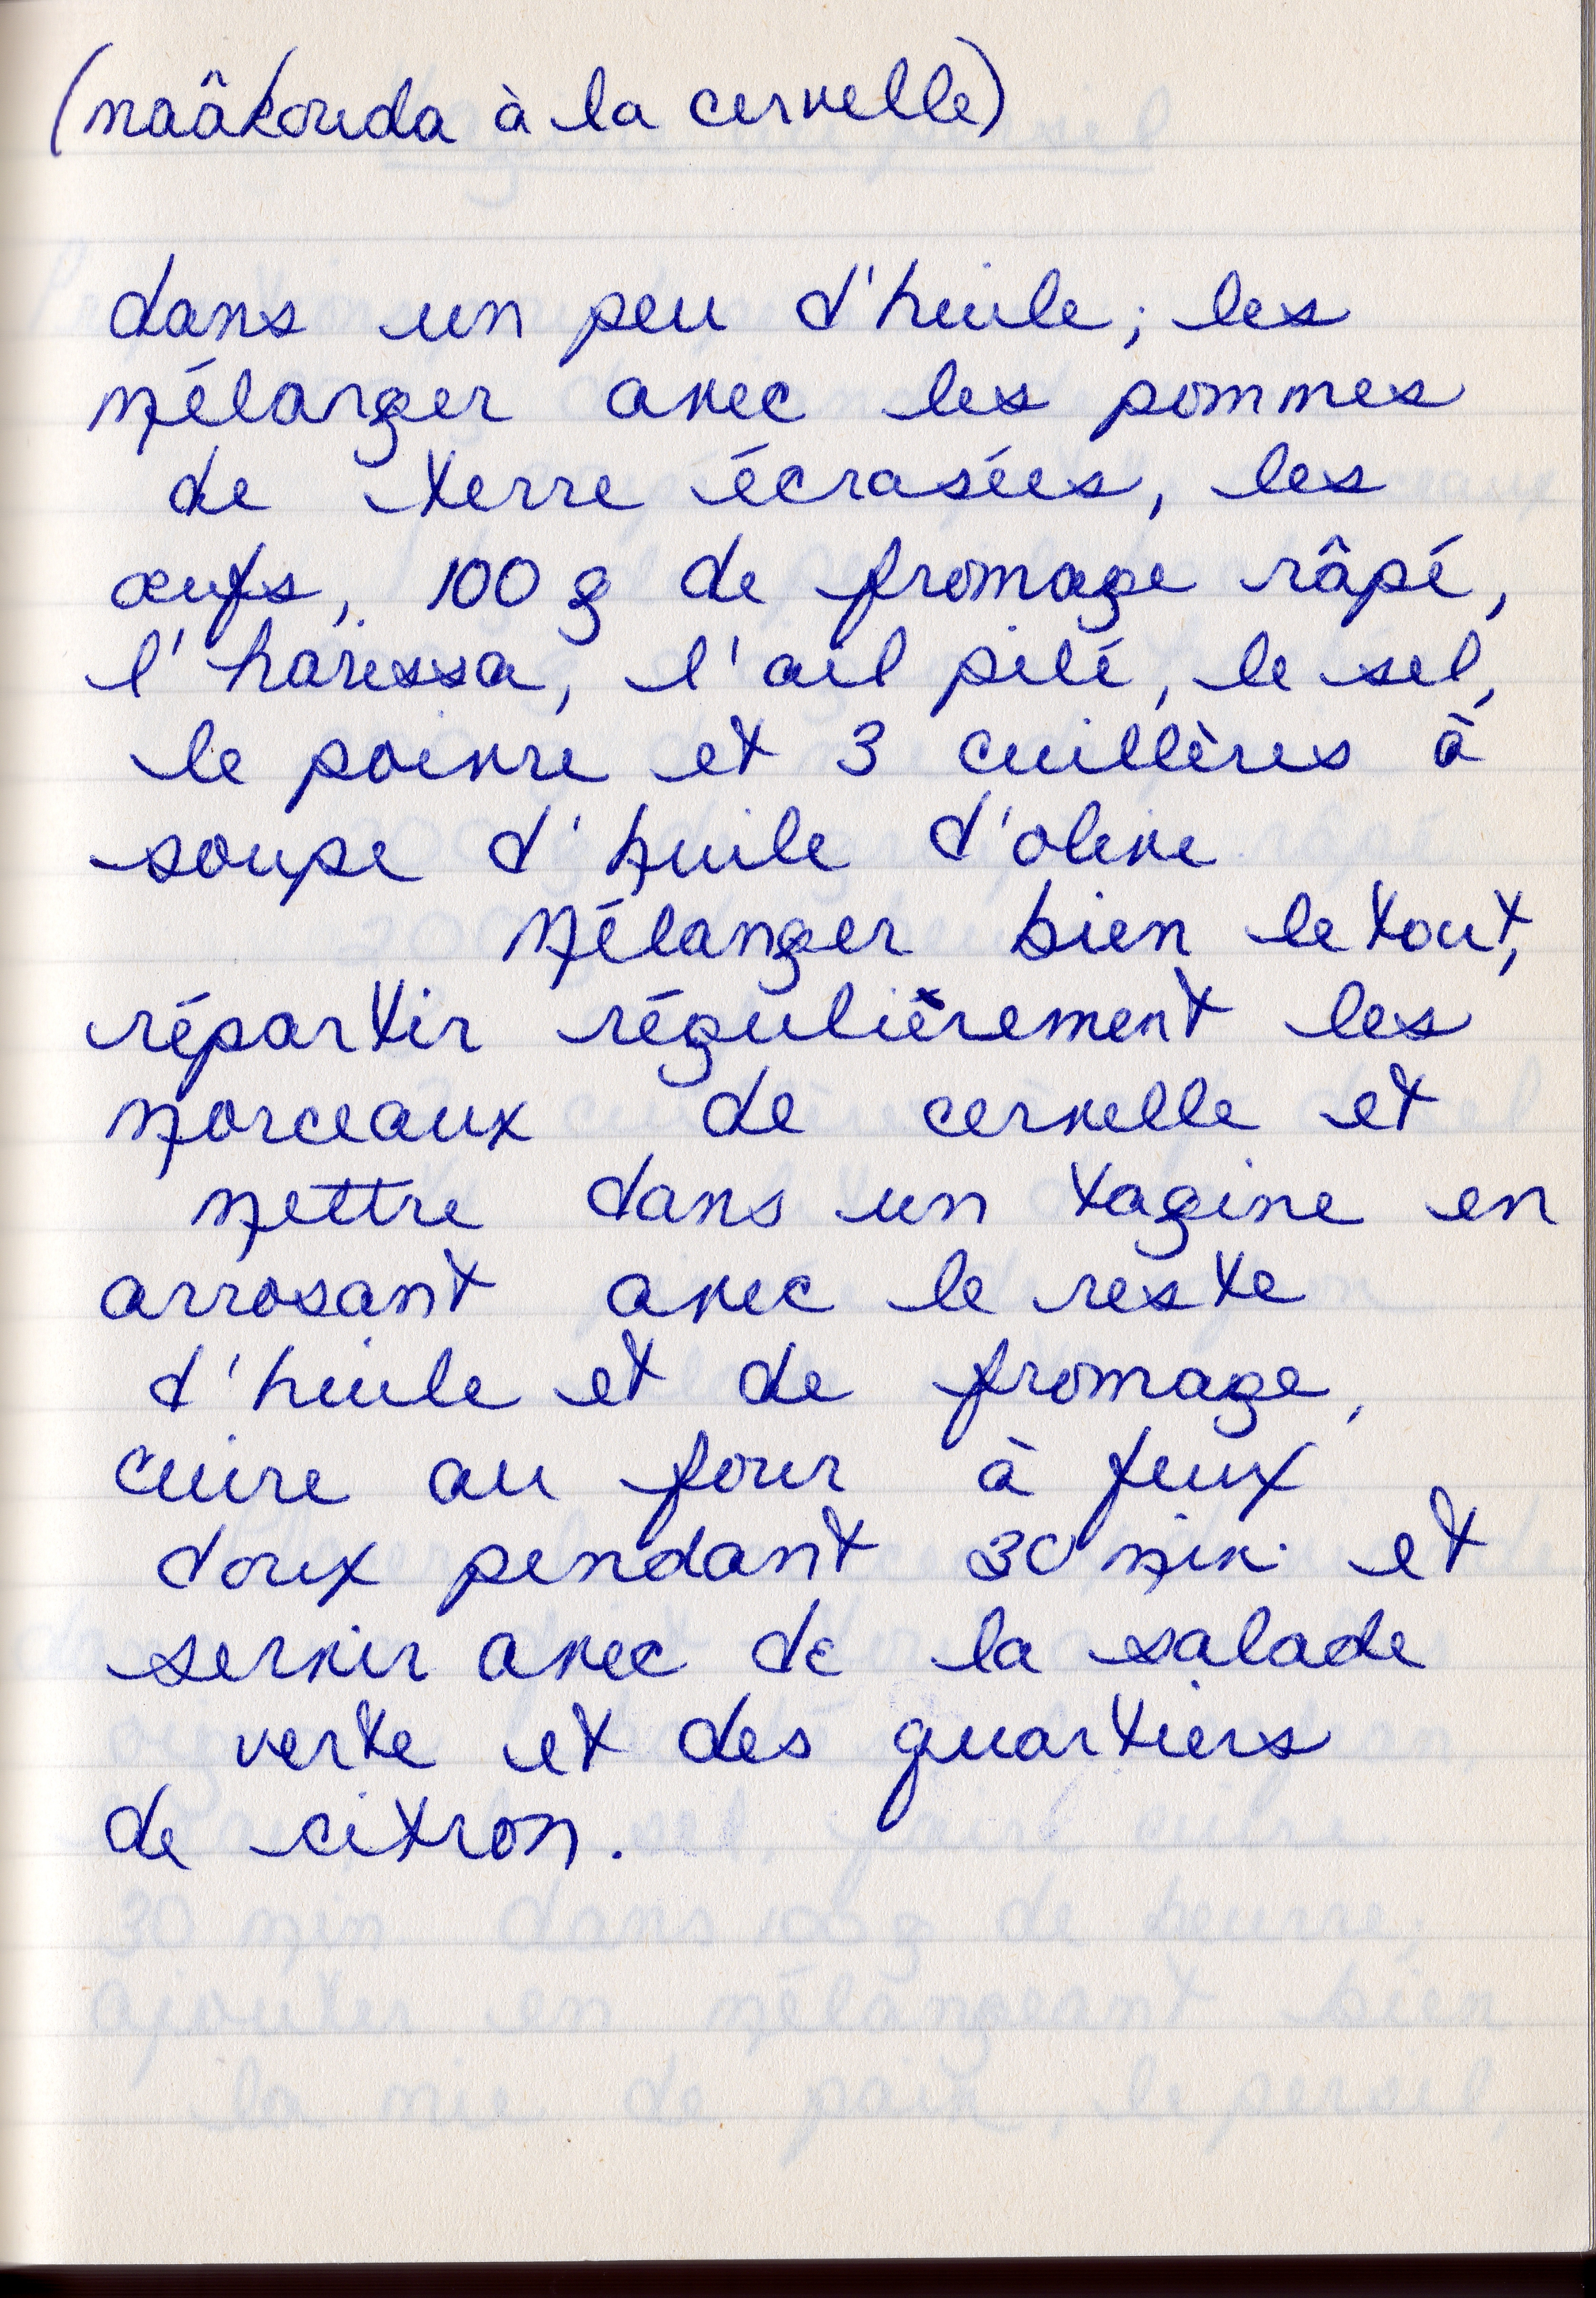 (maâkouda à la cervelle)
dans un peu d'huile; les
mélanger avec les pommes
de terre écrasées, les
œufs, 100 g de fromage râpé,
l'harissa, l'ail pilé, le sel,
le poivre et 3 cuillères à
soupe d'huile d'olive
Mélanger bien le tout,
répartir régulièrement les
morceaux de cervelle et
mettre dans un tagine en
arrosant avec le reste
d'huile et de fromage,
cuire au four à feux
doux pendant 30 min. et
servir avec de la salade
verte et des quartiers
de citron.
30 min dans 100 g de beurre,
Ajouter en mélangeant bien
la mie de pain, le persil,